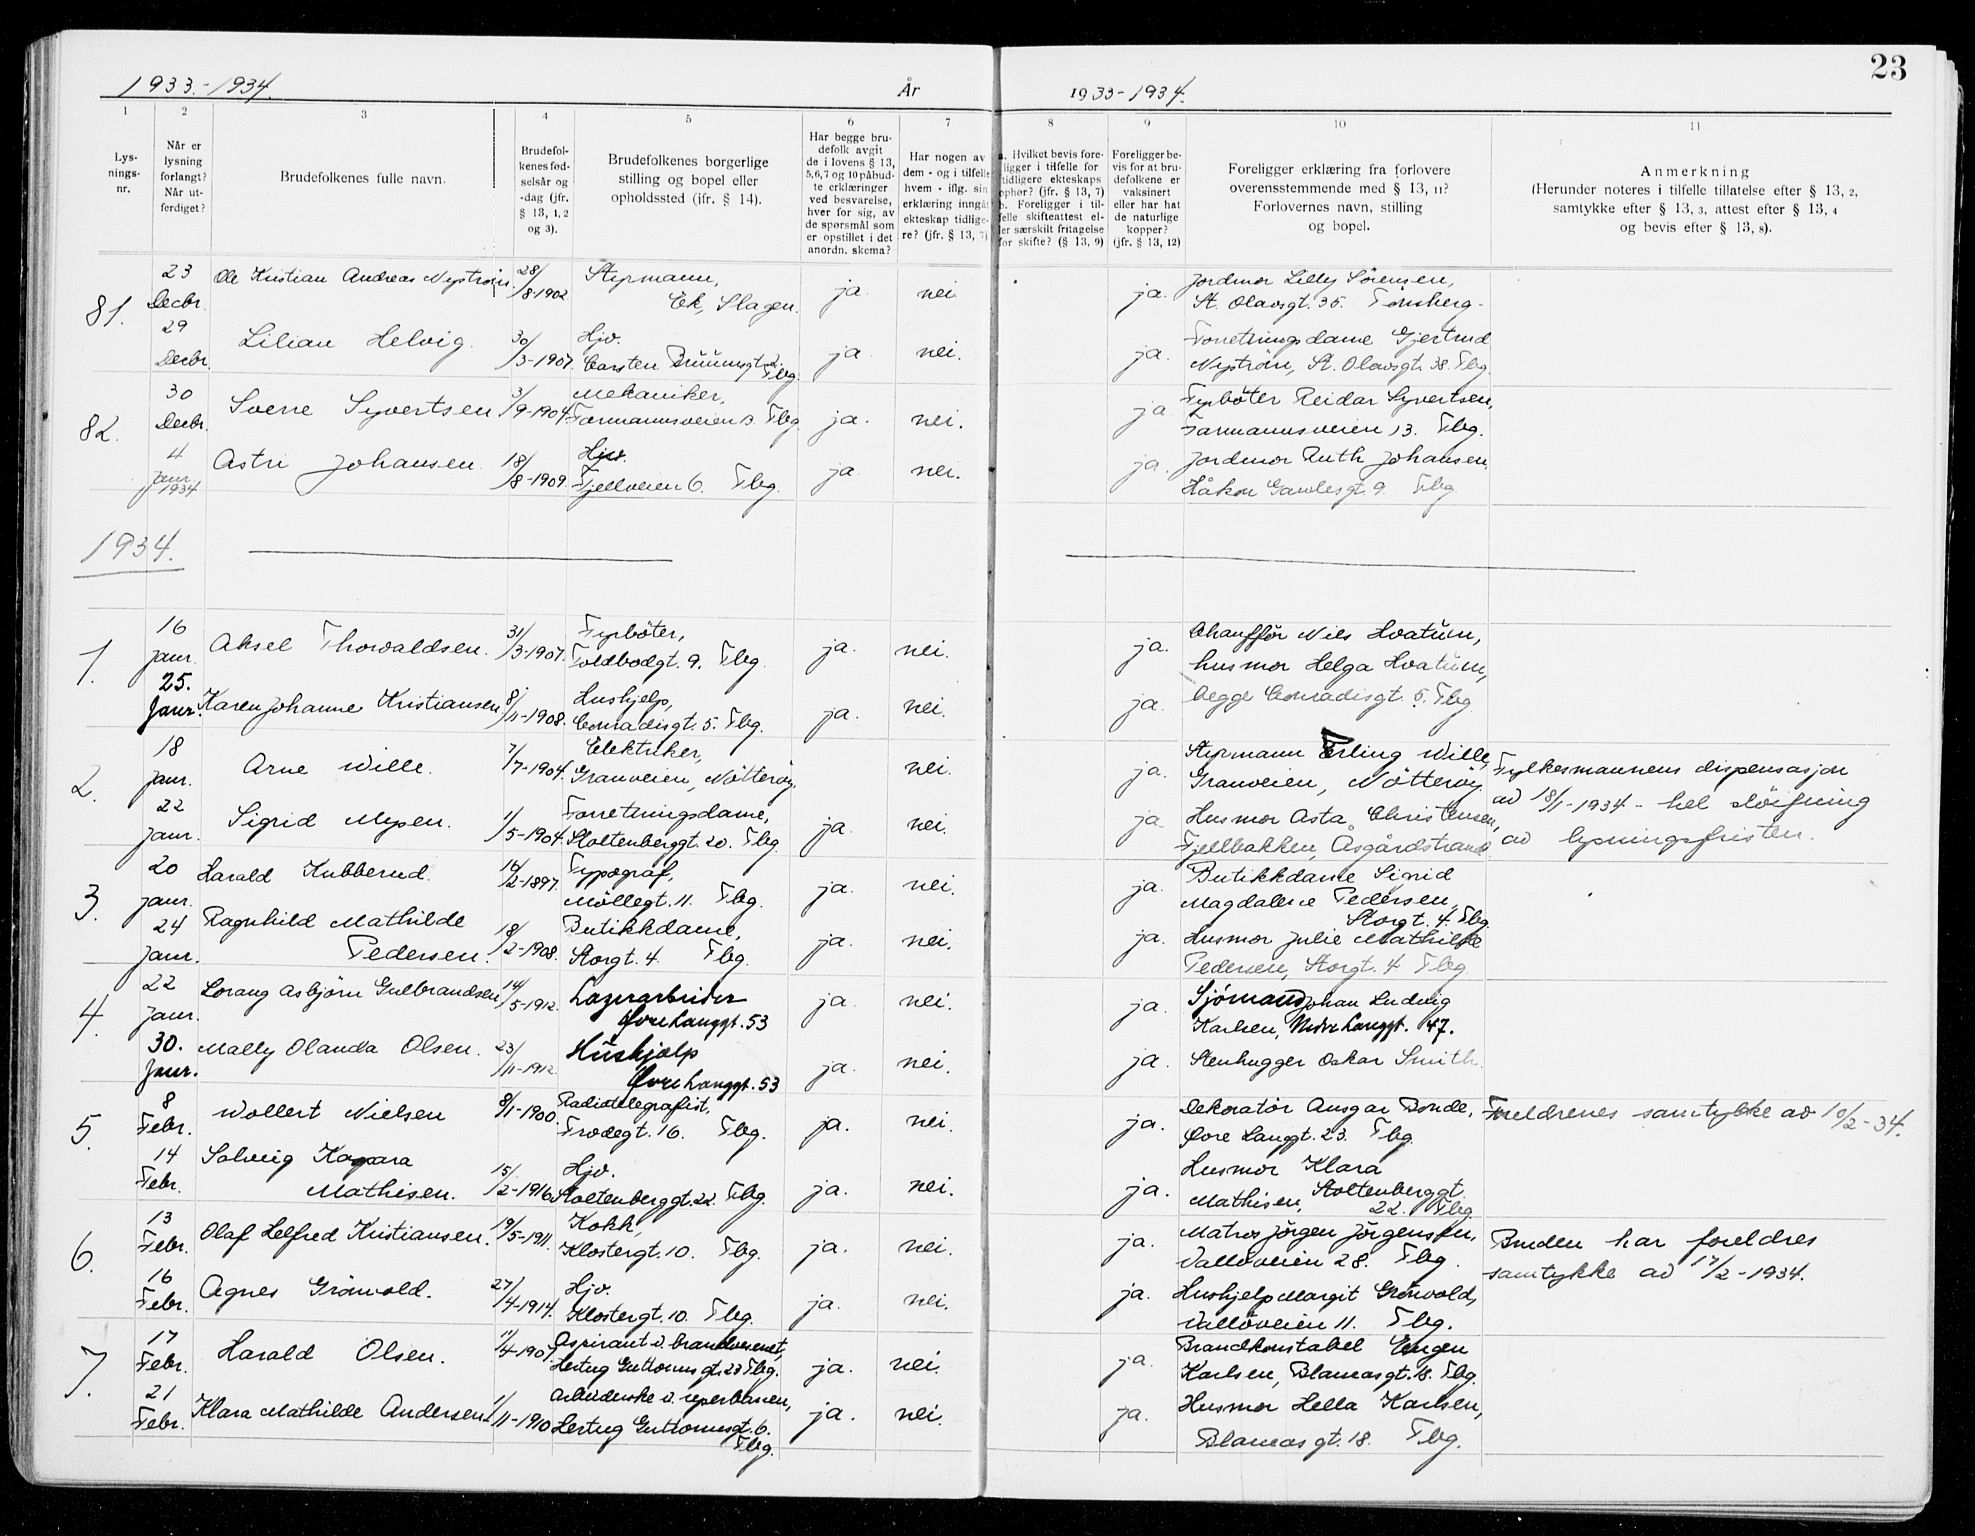 23
1933.-1934.
År
1933-1934.
1 2 3 4 5 6 7 8 9 10 11
Lys-
nings-
nr.
Når er
lysning
forlangt?
Når ut-
ferdiget?
Brudefolkenes fulle navn.
Brudefol-
kenes fød-
selsår og
-dag (jfr.
§ 13, 1, 2
og 3).
Brudefolkenes borgerlige
stilling og bopel eller
opholdssted (jfr. § 14).
Har begge bru-
defolk avgit
de i lovens § 13,
5,6,7 og 10 påbud-
te erklæringer
ved besvarelse,
hver for sig, av
de spørsmål som
er opstillet i det
anordn. skema?
Har nogen av
dem - og i tilfelle
hvem - iflg. sin
erklæring inngått
ekteskap tidlige-
re? (jfr. § 13, 7)
a. Hvilket bevis fore-
ligger i tilfelle for
tidligere ekteskaps
ophør? (jfr. § 13, 7)
b. Foreligger i til-
felle skifteattest el-
ler særskilt fritagelse
for skifte? (§ 13, 9)
Foreligger be-
vis for at bru-
defolkene er
vaksinert
eller har hat
de naturlige
kopper?
(jfr. § 13, 12)
Foreligger erklæring fra forlovere
overensstemmende med § 13, 11?
Forlovernes navn, stilling
og bopel.
Anmerkning
(Herunder noteres i tilfelle tillatelse efter § 13, 2,
samtykke efter § 13, 3, attest efter § 13, 4
og bevis efter § 13, 8).
81.
23 Decbr. Ole Kristian Andreas Nystrøm 28/8-1902 Styrmann, ja. nei. ja. Jordmor Lilly Sörensen,
Ek, Slagen. St. Olavsgt. 35. Tönsberg.
29 Decbr. Lilian Helvig. 30/3-1907. Hjv. ja nei. ja. Forretningsdame Gjertrud
Carsten Bruunsgt. 2. Tbg. Nyström, St. Olavsgt. 38. Tbg.
82.
30 Decbr. Sverre Syvertsen 3/9-1904. Mekaniker, ja. nei. ja Fyrböter Reidar Syvertsen,
Farmannsveien 13. Tbg. Farmannsveien 13. Tbg.
4 Janr. 1934 Astri Johansen. 18/8-1909. Hjv. ja nei. ja. Jordmor Ruth Johansen.
Fjellveien 6. Tbg. Håkon Gamlesgt. 9. Tbg.
1934.
1.
16 Janr. Aksel Thorvaldsen. 31/3-1907. Fyrböter, ja. nei. ja. Chaufför Nils Hvatum,
Toldbodgt. 9. Tbg. husmor Helga Hvatum,
25. Janr. Karen Johanne Kristiansen 8/11-1908. Hushjelp, ja. nei. ja. begge Conradisgt. 5. Tbg.
Conradisgt. 5. Tbg.
2.
18 Janr. Arne Wille. 7/7-1904. Elektriker, nei. ja. Styrmann Erling Wille, Fylkesmannens dispensasjon
Granveien, Nötteröy. Granveien, Nötteröy av 18/1-1934 - hel slöifning
22 Janr. Sigrid Mysen. 1/5-1904. Forretningsdame, ja. nei. ja. Husmor Asta Christensen, av lysningsfristen.
Stoltenberggt. 20. Tbg. Fjellbakken, Åsgårdstrand
3.
20 Janr. Harald Kubberud. 14/2-1897. Typograf, ja. nei. ja. Butikkdame Sigrid
Möllegt. 11. Tbg. Magdalene Pedersen,
Storgt. 4. Tbg.
24 Janr. Ragnhild Mathilde 18/2-1908. Butikkdame, ja. nei. ja. Husmor Julie Mathilde
Pedersen. Storgt. 4 Tbg. Pedersen, Storgt. 4 Tbg.
4.
22 Janr. Lorang Asbjörn Gulbrandsen 14/5-1912. Lagerarbeider ja. nei. ja. Sjömann Johan Ludvig
Øvre Langgt. 53 Karlsen, Nedre Langgt. 47.
30. Janr. Mally Olanda Olsen. 23/11-1912. Hushjelp ja. nei. ja. Stenhugger Oskar Smith.
Øvre Langgt. 53
5.
8 Febr. Wollert Nielsen 8/1-1900. Radiotelegrafist, ja. nei. ja. Dekoratör Ansgar Bonde, Foreldrenes samtykke av 10/2-34.
Frodegt. 16. Tbg. Övre Langgt. 23. Tbg.
14 Febr. Solveig 15/2-1916 Hjv. ja. nei. ja. Husmor Klara
Mathisen. Stoltenberggt. 22. Tbg. Mathisen, Stoltenberggt.
22. Tbg.
6.
13 Febr. Olaf Helfred Kristiansen. 19/5-1911. Kokk, ja. nei. ja. Matros Jörgen Jörgensen, Bruden har foreldres
Klostergt. 10. Tbg. Vallöveien 28. Tbg. samtykke av 17/2-1934.
16 Febr. Agnes Grönvold. 27/4-1914. Hjv. ja. nei. ja. Hushjelp Margit Grönvold,
Klostergt. 10. Tbg. Vallöveien 11. Tbg.
7.
17 Febr. Harald Olsen. 11/4-1907. Aspirant v. brandvesenet, ja. nei. ja. Brandkonstabel Eugen
Hertug Guttormsgt. 23 Tbg. Karlsen, Blamasgt. 18. Tbg.
21 Febr. Klara Mathilde Andersen 1/11-1910 Arbeiderske v. reperbanen, ja. nei. ja. Husmor Hella Karlsen,
Hertug Guttormsgt. 6. Blamasgt. 18. Tbg.
Tbg.